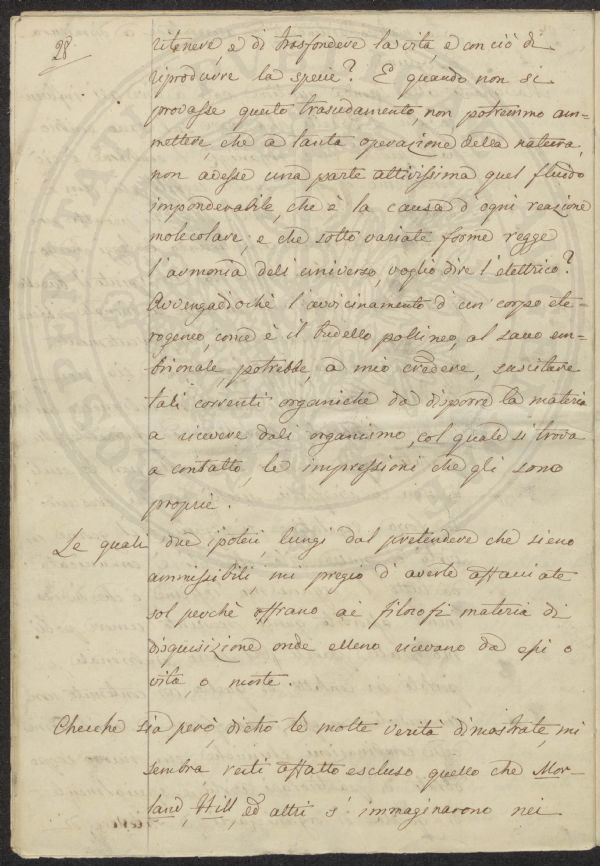 28.
ritenere, e di trasfondere la vita, e con ciò di
riprodurre la specie? E quando non si
provasse questo trasudamento, non potremmo am-
mettere, che a tanta operazione della natura,
non avesse una parte attivissima quel fluido
imponderabile, che è la causa d'ogni reazione
molecolare, e che sotto variate forme regge
l'armonia dell'universo, voglio dire l'elettrico?
Avvengadiochè l'avvicinamento d'un corpo ete-
rogeneo, come è il budello pollineo, al sacco em-
brionale, potrebbe, a mio credere, suscitare
tali correnti organiche da disporre la materia
a ricevere dall'organismo, col quale si trova
a contatto, le impressioni che gli sono
proprie.
Le quali due ipotesi, lungi dal pretendere che sieno
ammissibili, mi pregio d'averle affacciate
sol perchè offrano ai filosofi materia di
disquisizione onde elleno ricevano da essi o
vita, o morte.
Checchè sia però, dietro le molte verità dimostrate, mi
sembra resti affatto escluso quello che Mor-
land, Hill, ed altri s'immaginarono nei